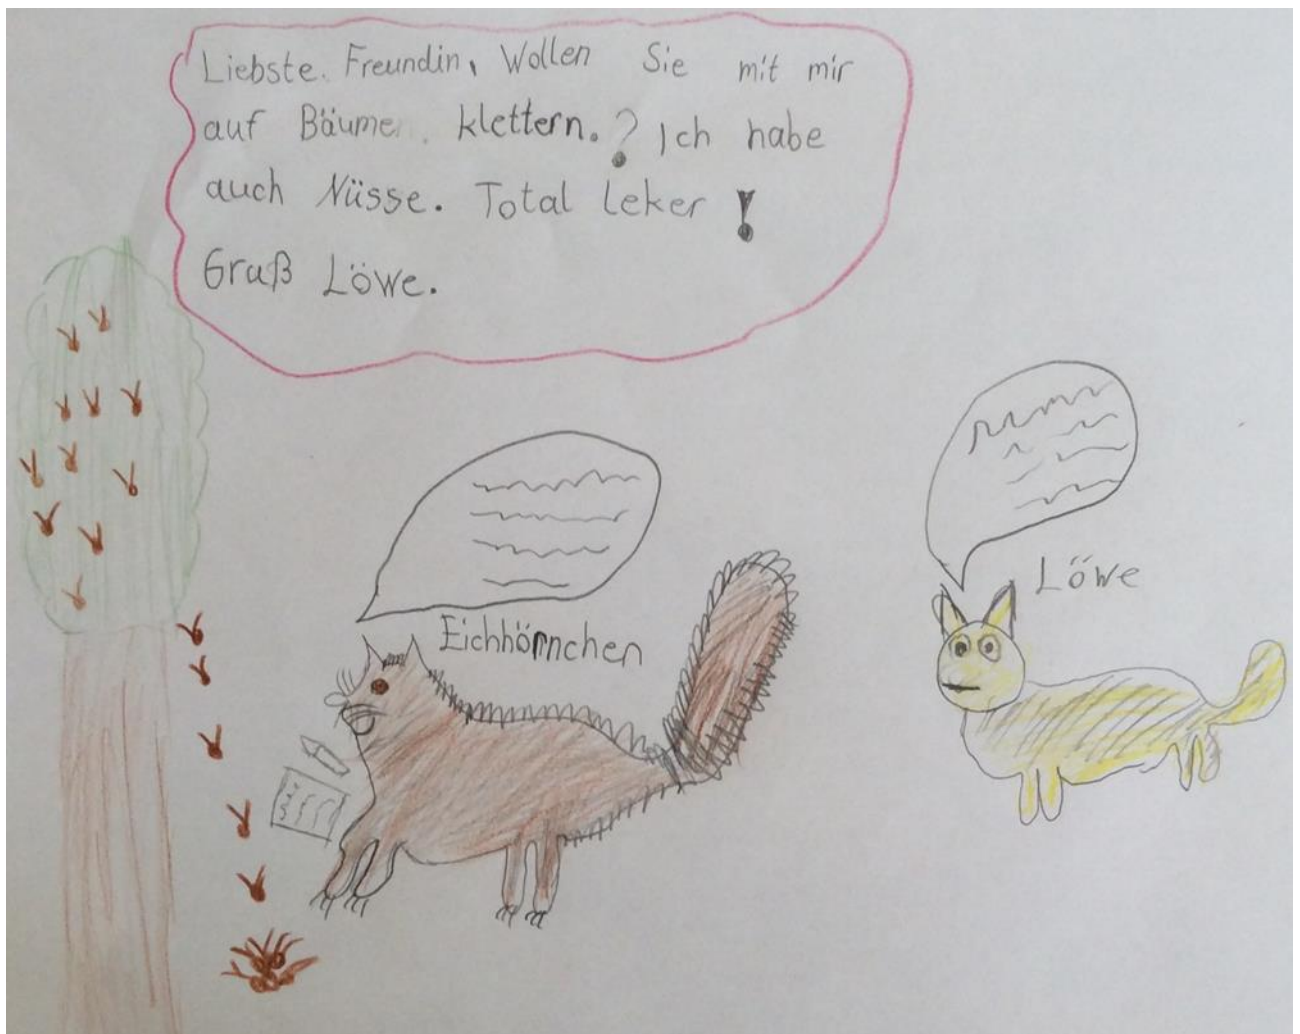 Liebste. Freundin, Wollen Sie mit mir
auf Bäume. klettern.? Ich habe
auch Nüsse. Total leker !
Gruß Löwe.
Löwe
Eichhörnchen